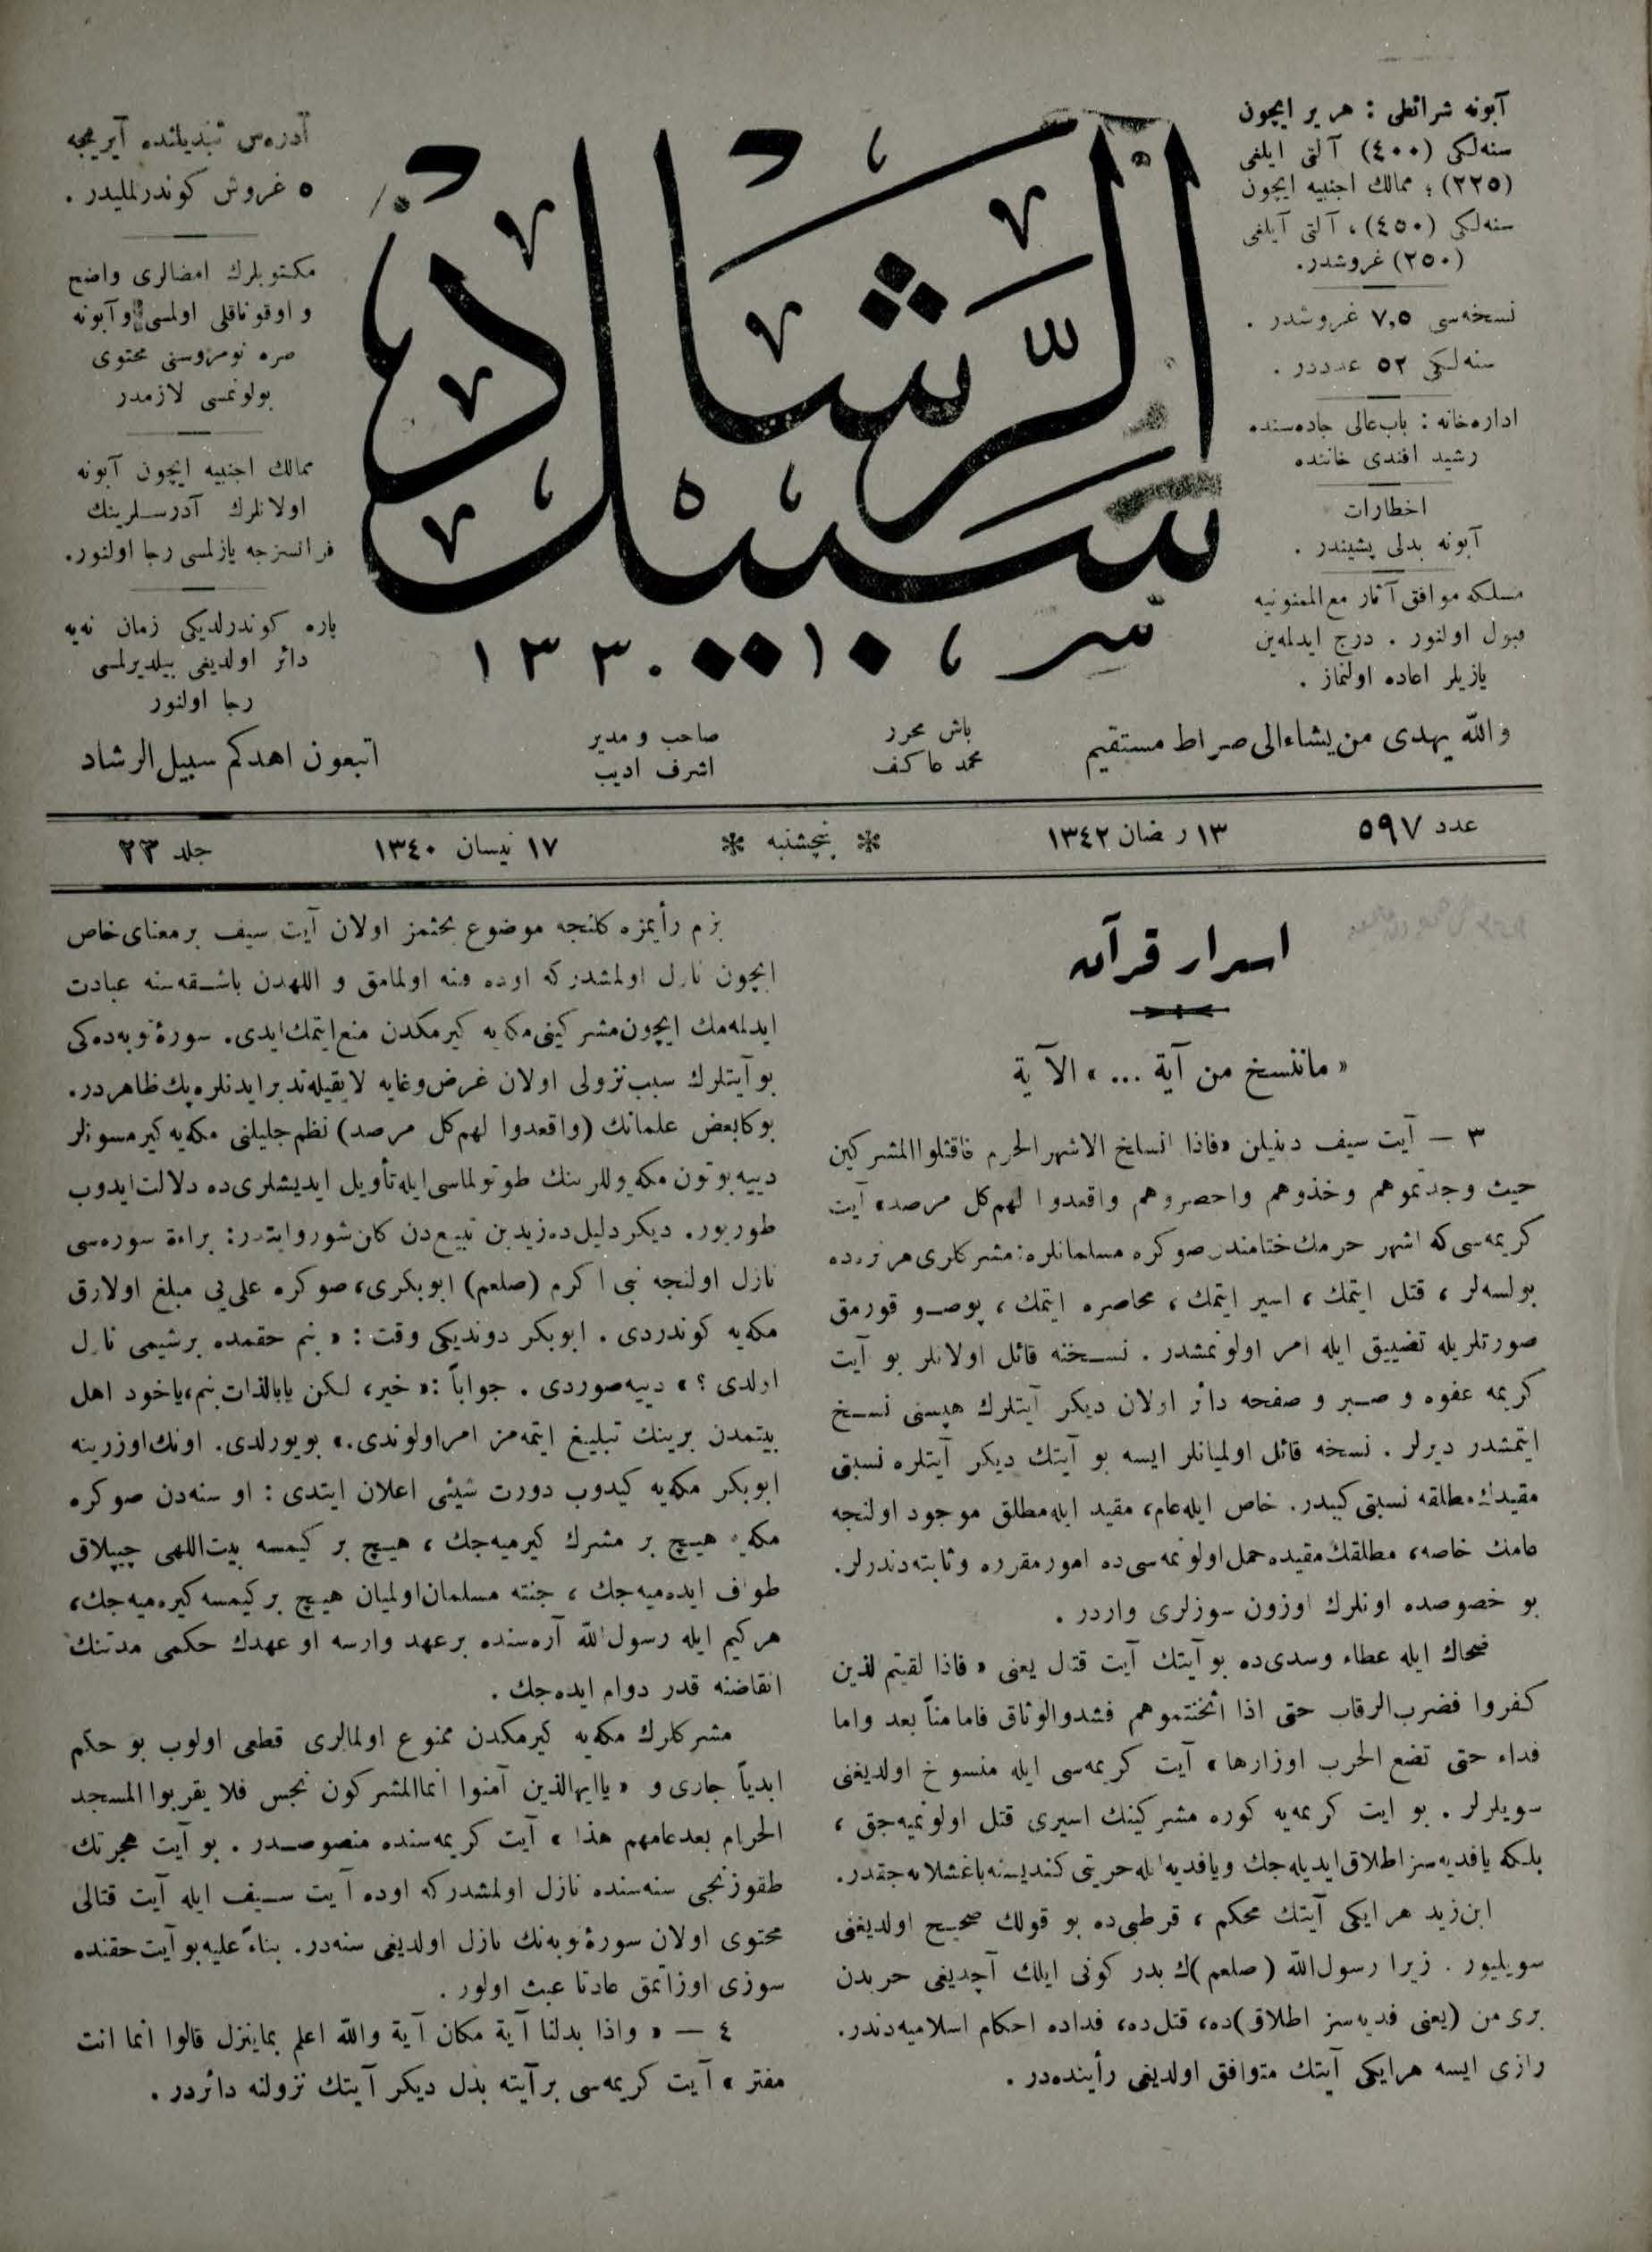 آبونه شرائطی : هر یر ایچون
سنه‌لكی (٤٠٠) آلتی ایلغی
(٢٢٥) ؛ ممالك اجنبیه ایچون
سنه‌لكی (٤٥٠) ، آلتی آیلغی
(٢٥٠) غروشدر.
نسخه‌سی ٧,٥ غروشدر .
سنه‌لكی ٥٢ عدددر .
اداره‌خانه : باب‌عالی جاده‌سنده
رشید افندی خاننده
اخطارات
آبونه بدلی پشیندر .
مسلكه موافق آثار مع‌الممنونیه
قبول اولنور . درج ایدلمه‌ین
یازیلر اعاده اولنماز .
سبیل الرشاد
١٣٣٠
آدره‌س تبدیلنده آیریجه
٥ غروش كوندرلملیدر .
مكتوبلرك امضالری واضح
و اوقوناقلی اولمسی و آبونه
صره نومروسنی محتوی
بولونمسی لازمدر
ممالك اجنبیه ایچون آبونه
اولانلرك آدرسلرینك
فرانسزجه یازلمسی رجا اولنور.
پاره كوندرلدیكی زمان نه‌یه
دائر اولدیغی بیلدیرلمسی
رجا اولنور
والله یهدی من یشاء الی صراط مستقیم
باش محرر
محمد عاكف
صاحب و مدیر
اشرف ادیب
اتبعون اهدكم سبیل الرشاد
عدد ٥٩٧
١٣ رمضان ١٣٤٢
پنجشنبه
١٧ نیسان ١٣٤٠
جلد ٢٣
اسرار قرآن
« ماننسخ من آیة ... » الآیة
٣ — آیت سیف دنیلن «فاذا انسلخ الاشهر الحرم فاقتلوا المشركین
حیث وجدتموهم وخذوهم واحصروهم واقعدوا لهم كل مرصد» آیت
كریمه‌سی كه اشهر حرمك ختامندن صوكره مسلمانلره: مشركلری هر نره‌ده
بولسه‌لر ، قتل ایتمك ، اسیر ایتمك ، محاصره ایتمك ، پوصو قورمق
صورتلریله تضییق ایله امر اولونمشدر . نسخنه قائل اولانلر بو آیت
كریمه عفوه و صبر و صفحه دائر اولان دیكر آیتلرك هپسنی نسخ
ایتمشدر دیرلر . نسخه قائل اولمیانلر ایسه بو آیتك دیكر آیتلره نسبتی
مقیدك مطلقه نسبتی كبیدر. خاص ایله عام، مقید ایله مطلق موجود اولنجه
عامك خاصه، مطلقك مقیده حمل اولونمه‌سی‌ده امور مقرره وثابته‌دندرلر.
بو خصوصده اونلرك اوزون سوزلری واردر .
ضحاك ایله عطاء وسدی‌ده بو آیتك آیت قتال یعنی « فاذا لقیتم لذین
كفروا فضرب‌الرقاب حتی اذا اثخنتموهم فشدوالوثاق فامامناً بعد واما
فداء حتی تضع الحرب اوزارها » آیت كریمه‌سی ایله منسوخ اولدیغنی
سویلرلر . بو ایت كریمه‌یه كوره مشركینك اسیری قتل اولونمیه‌جق ،
بلكه یا فدیه‌سز اطلاق ایدیله‌جك ویا فدیه ایله حریتی كندیسنه باغشلانه‌جقدر.
ابن‌زید هر ایكی آیتك محكم ، قرطبی‌ده بو قولك صحیح اولدیغنی
سویلیور . زیرا رسول‌الله (صلعم)ك بدر كونی ایلك آچدیغی حربدن
بری من (یعنی فدیه‌سز اطلاق)ده، قتل‌ده، فداده احكام اسلامیه‌دندر.
رازی ایسه هرایكی آیتك متوافق اولدیغی رأینده‌در .
بزم رأیمزه كلنجه موضوع بحثمز اولان آیت سیف بر معنای خاص
ایچون نازل اولمشدركه اوده فتنه اولمامق و اللهدن باشقه‌سنه عبادت
ایدلمه‌مك ایچون مشركینی مكه‌یه كیرمكدن منع ایتمك ایدی. سورۀ توبه‌ده‌كی
بو آیتلرك سبب نزولی اولان غرض وغایه لایقیله تدبر ایدنلره پك ظاهردر.
بوكا بعض علمانك (واقعدوا لهم كل مرصد) نظم جلیلنی مكه‌یه كیرمسونلر
دییه بوتون مكه یوللرینك طوتولماسی ایله تأویل ایدیشلری‌ده دلالت ایدوب
طوریور. دیكر دلیل‌ده زید بن تبیع‌دن كلن شو روایتدر: براءة سوره‌سی
نازل اولنجه نبی اكرم (صلعم) ابوبكری، صوكره علی‌یی مبلغ اولارق
مكه‌یه كوندردی . ابوبكر دوندیكی وقت : « بنم حقمده برشیمی نازل
اولدی ؟ » دییه صوردی . جواباً : « خیر، لكن یا بالذات بنم، یاخود اهل
بیتمدن برینك تبلیغ ایتمه‌مز امر اولوندی.» بویورلدی. اونك اوزرینه
ابوبكر مكه‌یه كیدوب دورت شیئی اعلان ایتدی : او سنه‌دن صوكره
مكه‌یه هیچ بر مشرك كیرمیه‌جك ، هیچ بر كیمسه بیت‌اللهی چیپلاق
طواف ایده‌میه‌جك ، جنته مسلمان اولمیان هیچ بر كیمسه كیره‌میه‌جك،
هركیم ایله رسول‌الله آره‌سنده بر عهد وارسه او عهدك حكمی مدتنك
انقاضنه قدر دوام ایده‌جك .
مشركلرك مكه‌یه كیرمكدن ممنوع اولمالری قطعی اولوب بو حكم
ابدیاً جاری و « یاایهاالذین آمنوا انماالمشركون نجس فلا یقربوا المسجد
الحرام بعد عامهم هذا » آیت كریمه‌سنده منصوصدر . بو آیت هجرتك
طقوزنجی سنه‌سنده نازل اولمشدركه اوده آیت سیف ایله آیت قتالی
محتوی اولان سورۀ توبه‌نك نازل اولدیغی سنه‌در. بناءً علیه بو آیت حقنده
سوزی اوزاتمق عادتا عبث اولور .
٤ — « واذا بدلنا آیة مكان آیة والله اعلم بماینزل قالوا انما انت
مفتر » آیت كریمه‌سی بر آیته بدل دیكر آیتك نزولنه دائردر .